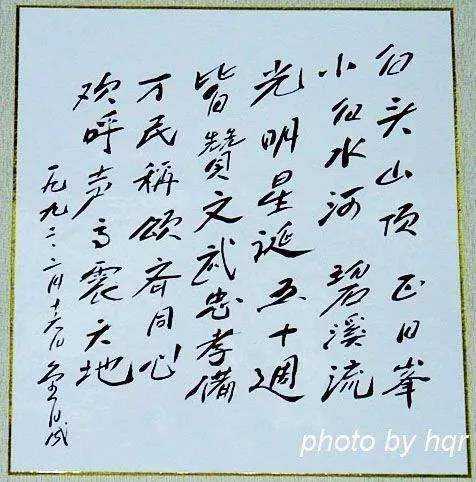 白头山顶 正日峯
小白水河 碧溪流
光明星诞五十週
皆贊文武忠孝備
万民稱颂齐同心
欢呼声高震天地
一九九二.二月十六日 金日成
photo by hqr